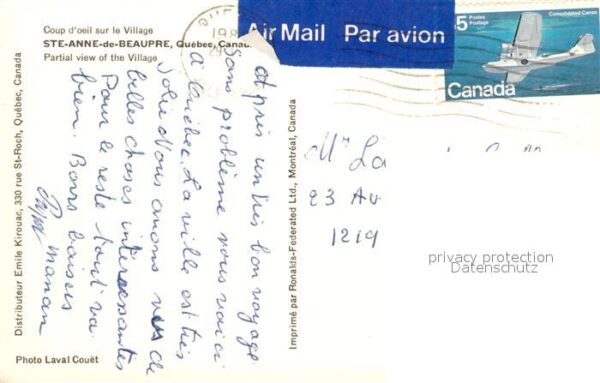 Coup d'oeil sur le Village
STE-ANNE-de-BEAUPRE, Québec, Canad
Partial view of the Village
Air Mail Par avion
5 Postes Postage
Consolidated Canso
Canada
Distributeur Emile Kirouac, 330 rue St-Roch, Québec, Canada
Imprimé par Ronalds-Federated Ltd., Montréal, Canada
Photo Laval Couët
après un très bon voyage
sans problème nous voici
a Québec. La ville est très
jolie Nous avons vus de
belles choses interessantes
Pour le reste tout va
bien. Bons baisers
maman
23 Av
1219
privacy protection
Datenschutz